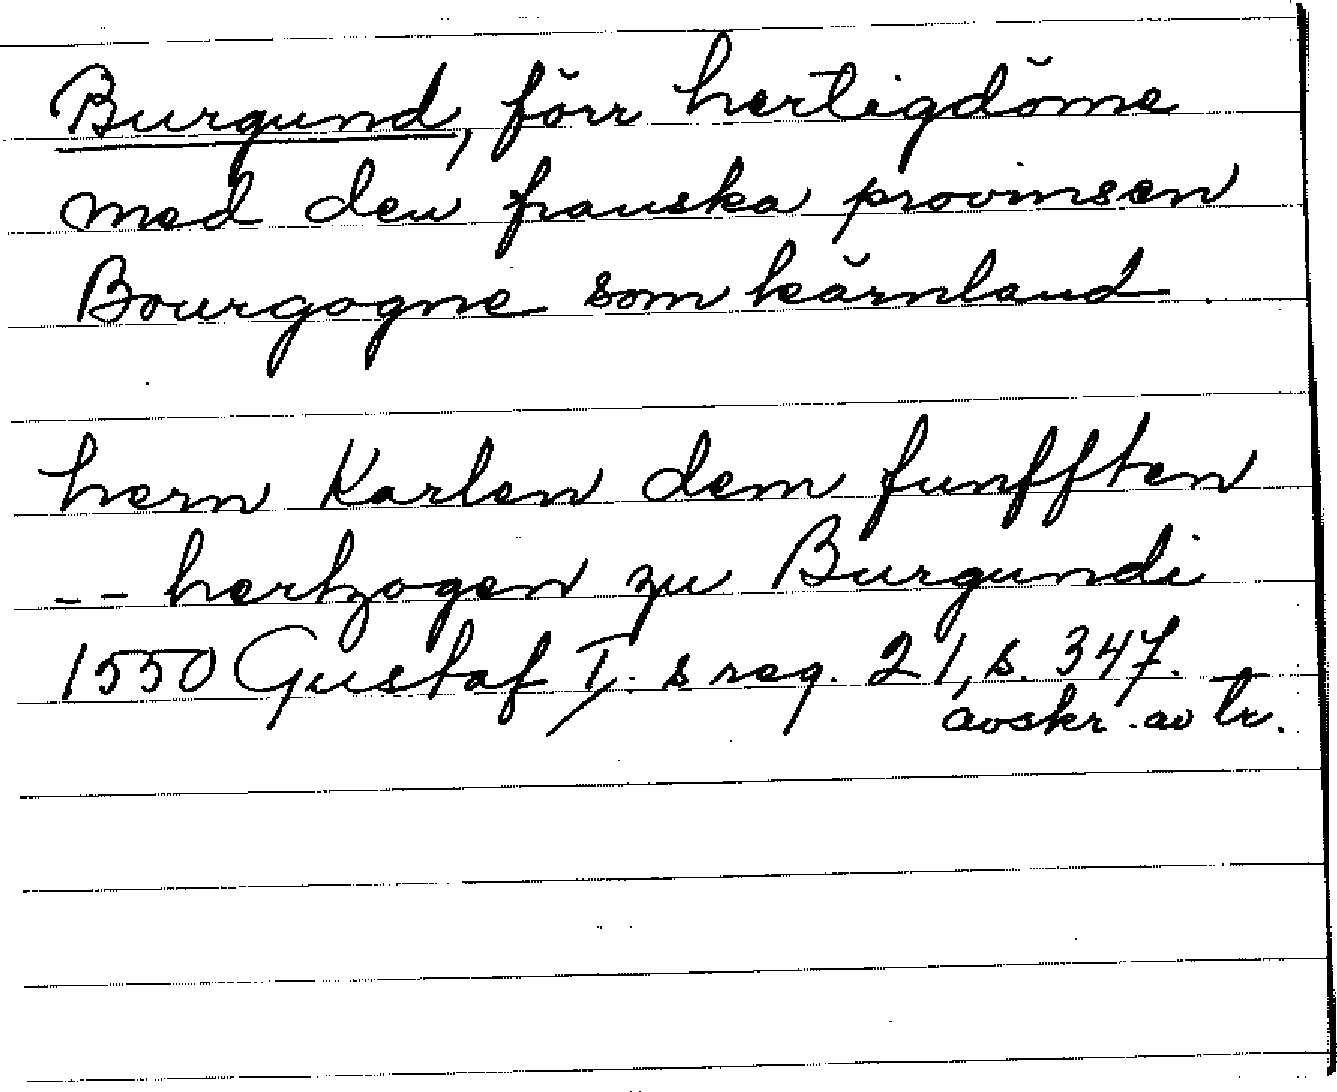 Burgund, förr hertigdöme
med den franska provinsen
Bourgogne som kärnland.
hern Karlen dem funfften
-- hertzogen zu Burgundi
1550 Gustaf I:s reg. 21, s. 347.
avskr. av tr.